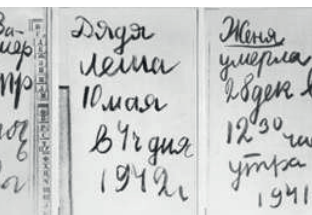 Дядя
леша
10 мая
в 4ч дня
1942 г
Женя
умерла
28 дек в
12 30
утра
1941